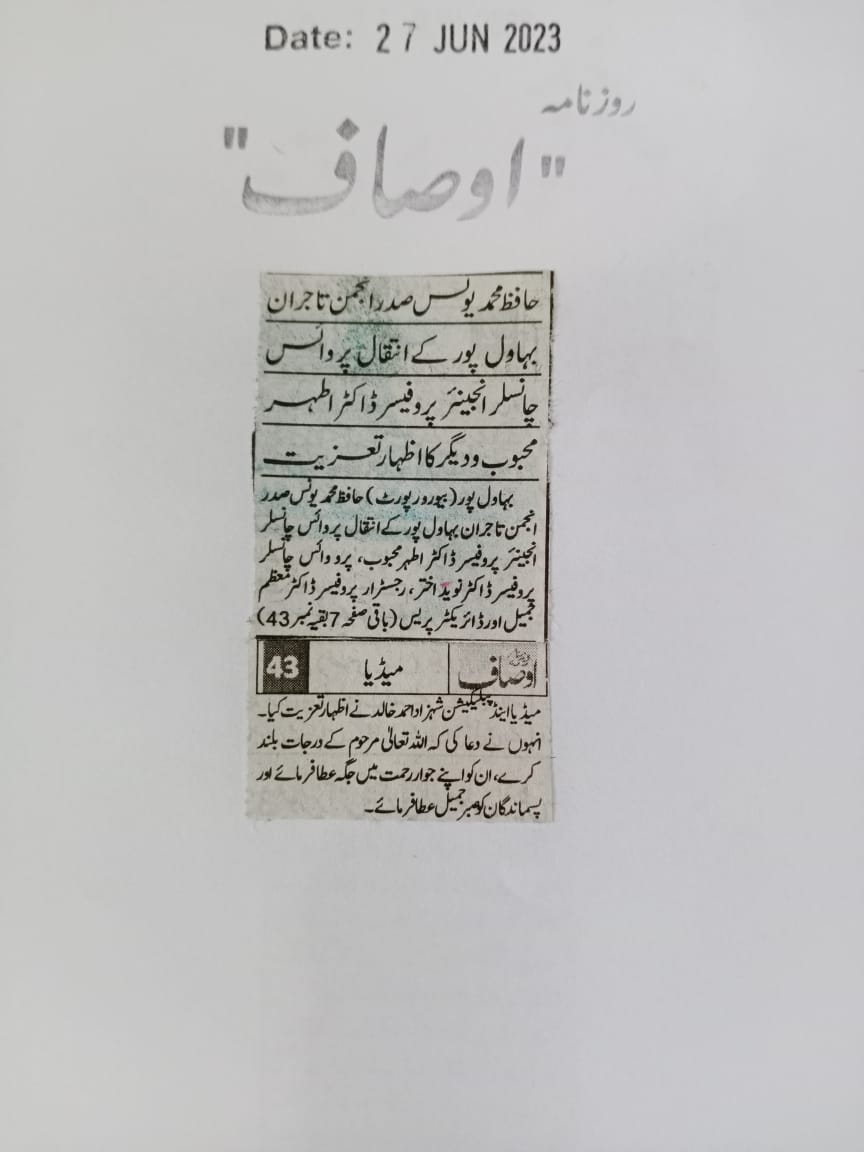 Date: 27 JUN 2023
روزنامہ
"اوصاف"
حافظ محمد یونس صدر انجمن تاجران
بہاول پور کے انتقال پر وائس
چانسلر انجینئر پروفیسر ڈاکٹر اطہر
محبوب و دیگر کا اظہار تعزیت
بہاول پور (بیورو رپورٹ) حافظ محمد یونس صدر
انجمن تاجران بہاول پور کے انتقال پر وائس چانسلر
انجینئر پروفیسر ڈاکٹر اطہر محبوب، پرو وائس چانسلر
پروفیسر ڈاکٹر نوید اختر، رجسٹرار پروفیسر ڈاکٹر معظم
جمیل اور ڈائریکٹر پریس (باقی صفحہ 7 بقیہ نمبر 43)
اوصاف میڈیا 43
میڈیا اینڈ پبلیکیشن شہزاد احمد خالد نے اظہار تعزیت کیا۔
انہوں نے دعا کی کہ اللہ تعالیٰ مرحوم کے درجات بلند
کرے، ان کو اپنے جوار رحمت میں جگہ عطا فرمائے اور
پسماندگان کو صبر جمیل عطا فرمائے۔